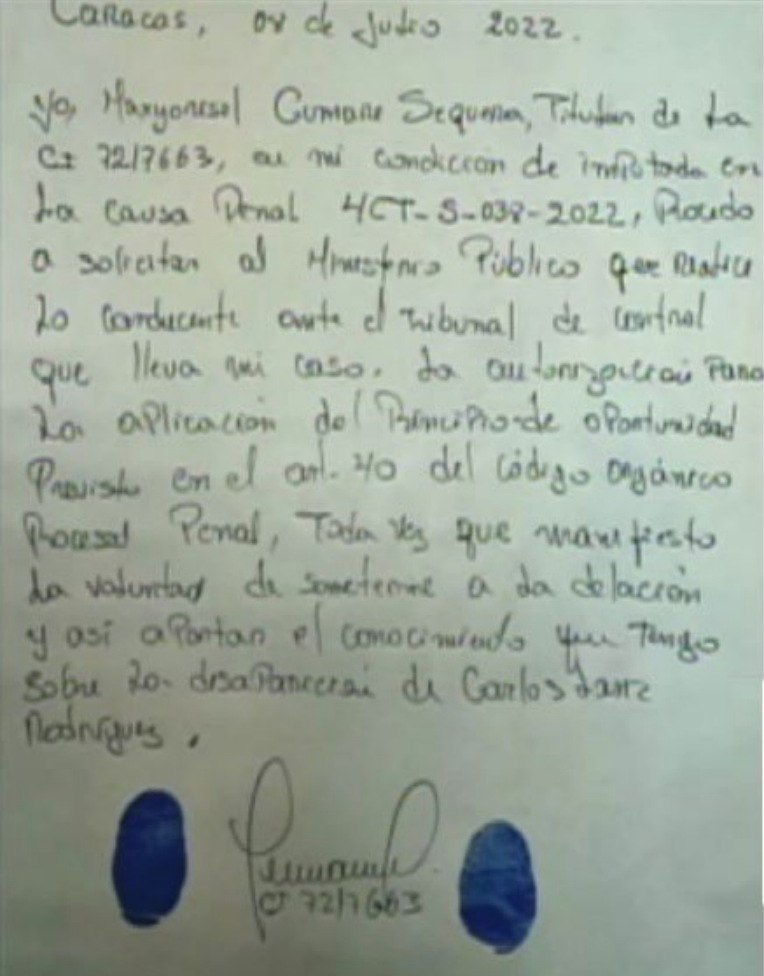 Caracas, 08 de Julio 2022.
Yo, Maryorisol Cumare Sequera, Titular de La
CI 7217663, en mi condición de imputada en
La causa Penal 4CT-S-038-2022, Procedo
a solicitar al Ministerio Público que realice
Lo conducente ante el Tribunal de control
que lleva mi caso. La autorización Para
La aplicación del Principio de oPortunidad
Previsto en el art. 40 del Código Orgánico
Procesal Penal, Toda vez que manifiesto
La voluntad de someterme a La delación
y así aPortar el conocimiento que Tengo
Sobre La desaParición de Carlos Lanz
Rodríguez.
CI 7217663